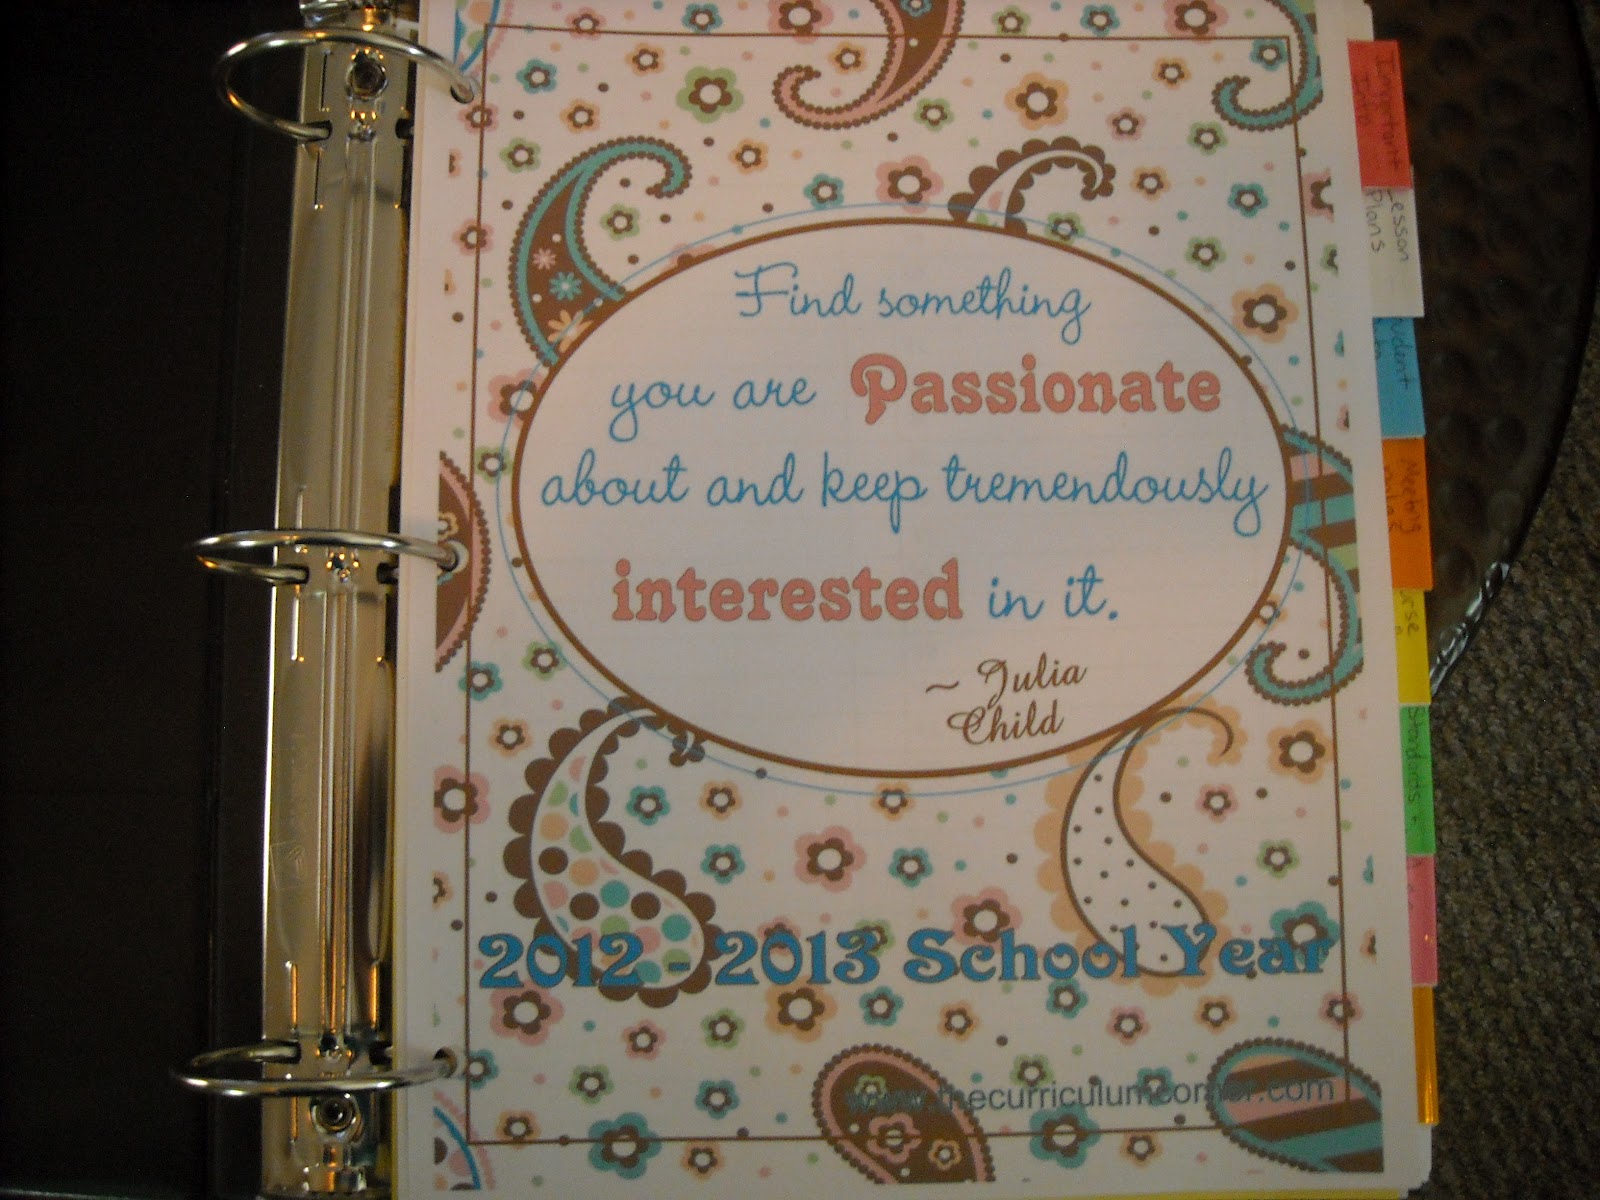 Find something
you are Passionate
about and keep tremendously
interested in it.
~ Julia
Child
2012 - 2013 School Year
www.thecurriculumcorner.com
Important
Info
Lesson
Plans
Meeting
Standards